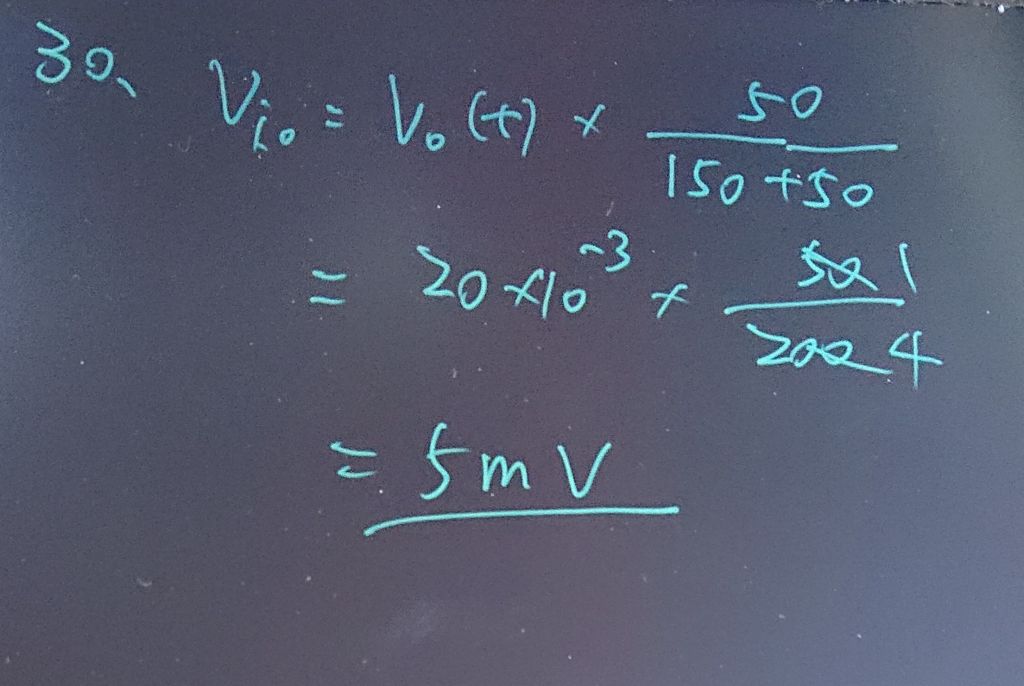 30、 Vio = Vo (+) × 50 / 150 + 50
= 20 × 10⁻³ × 50 1 / 200 4
= 5 m V